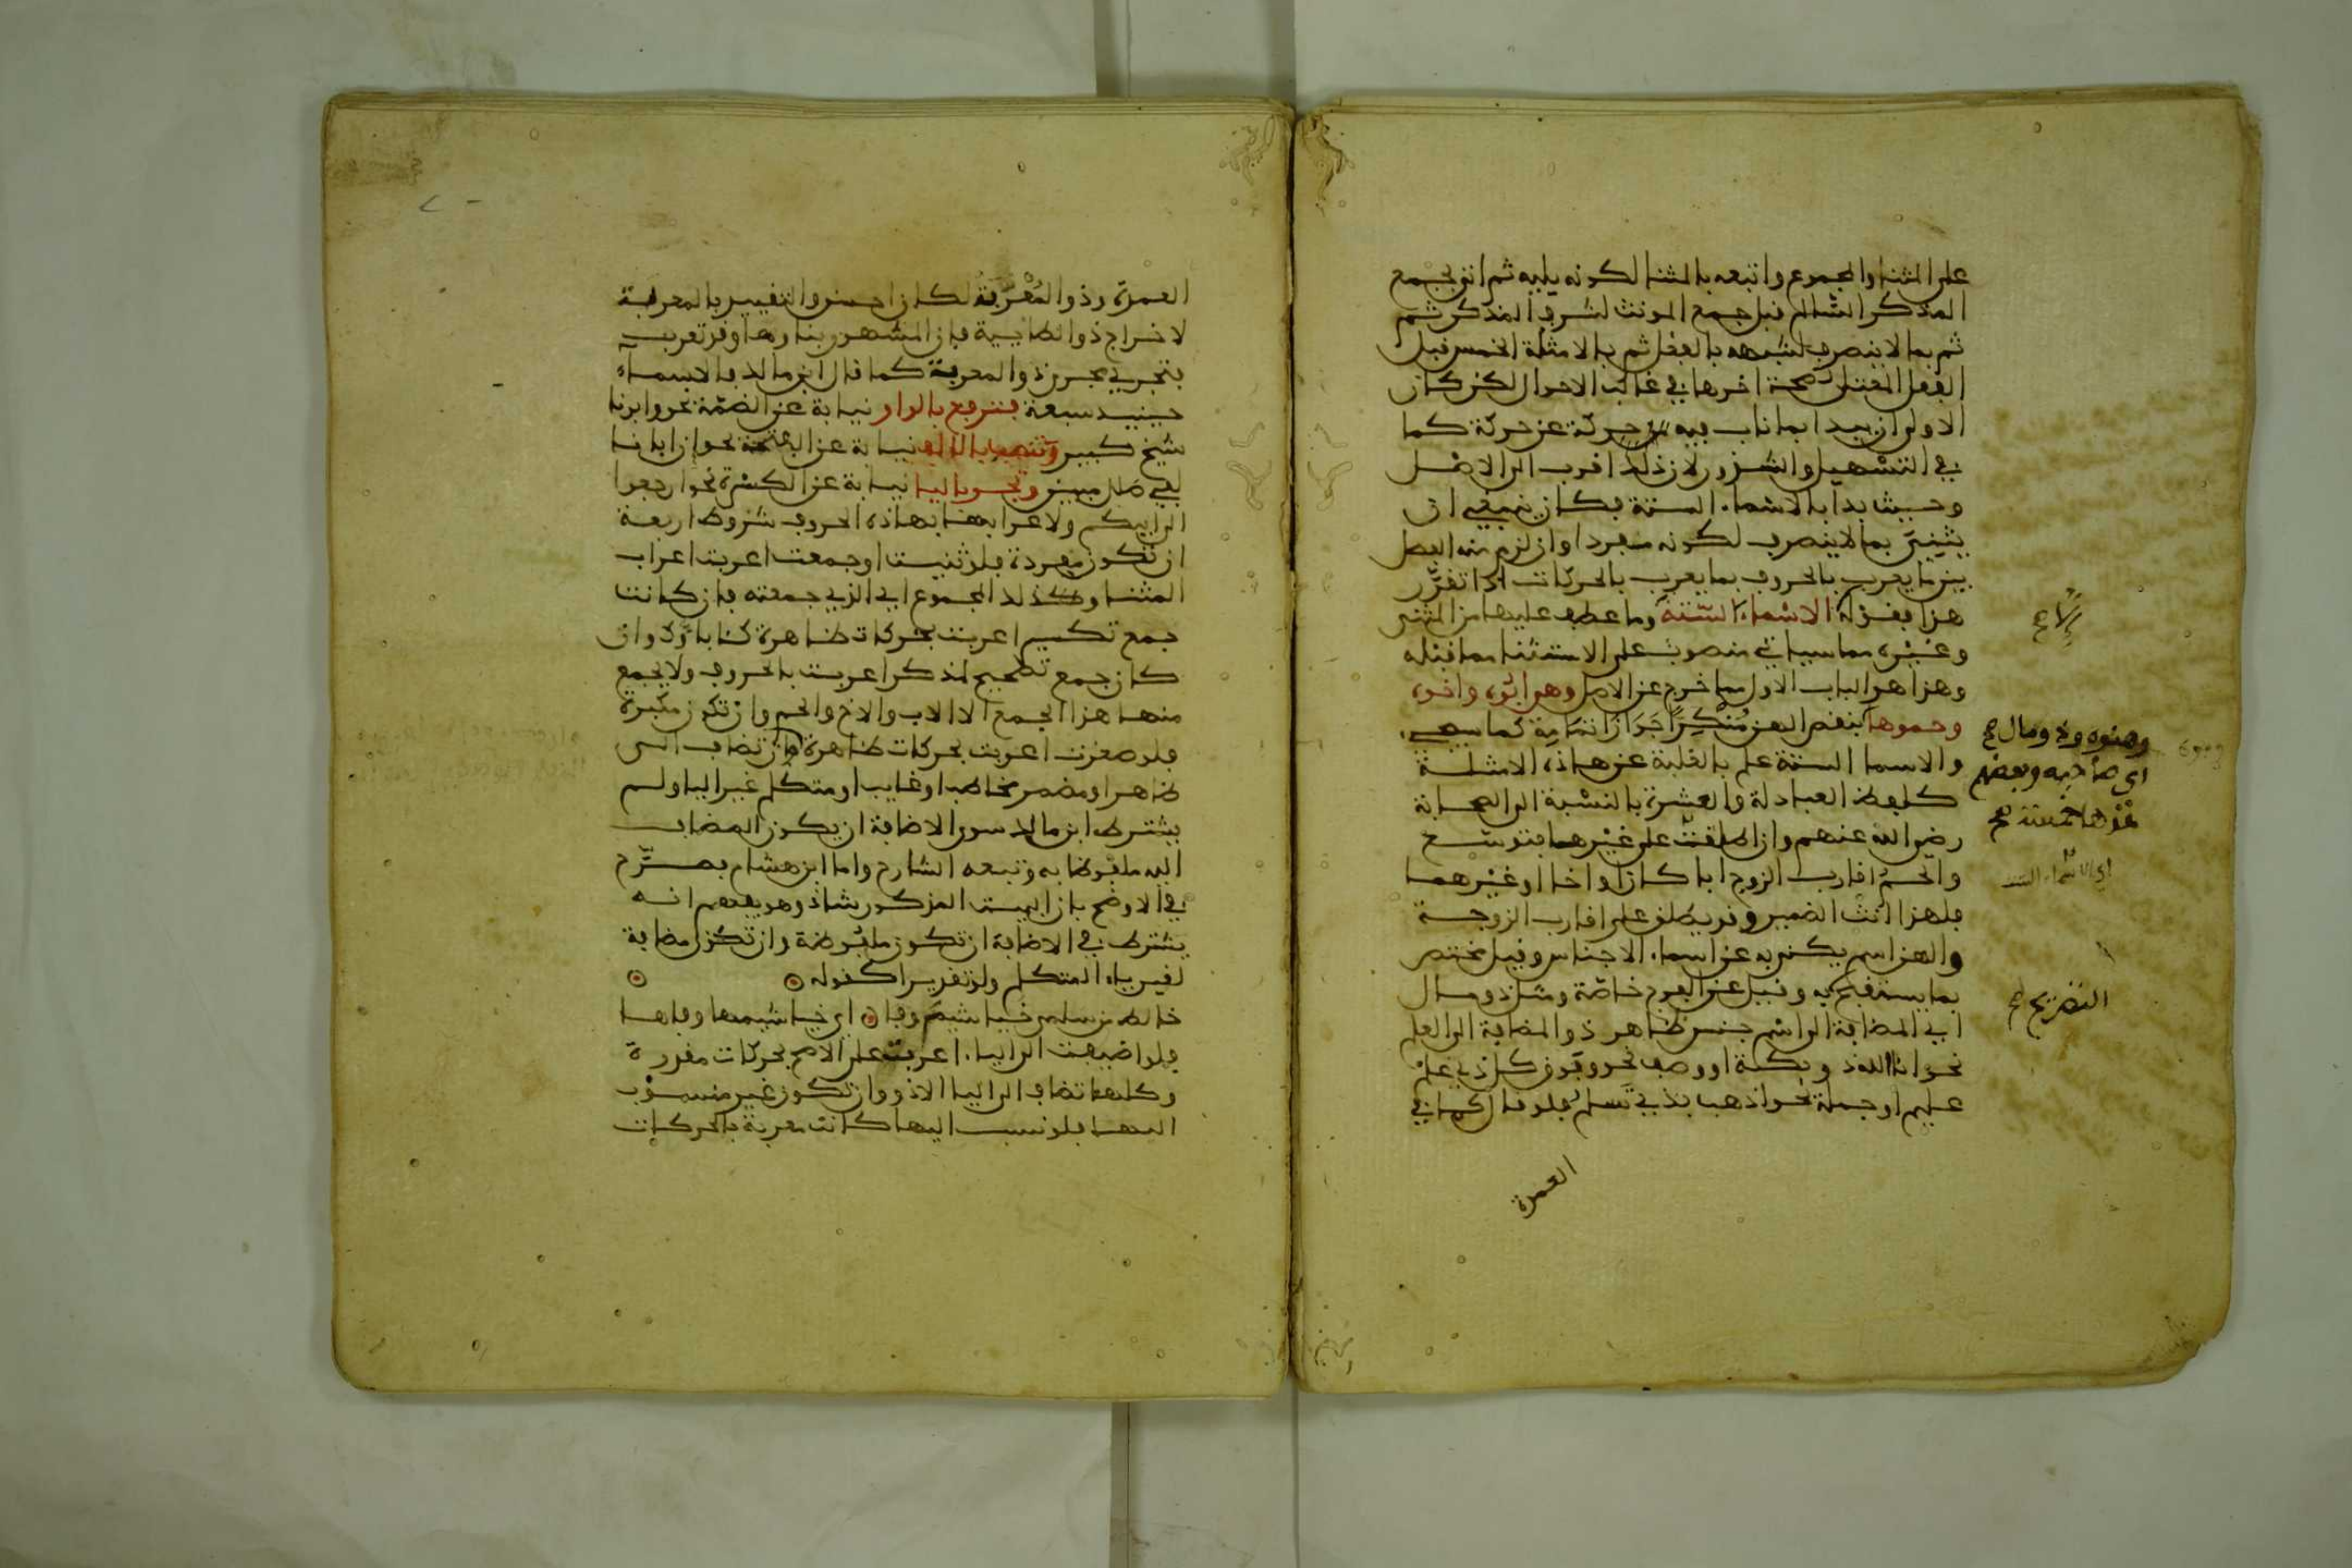 على المثنا والمجموع واتبعه بالمثنا لكونه يليه ثم انتى بجمع
المذكر السالم قبل جمع المونث لشرف المذكر ثم
ثم بما لا ينصرف لشبهه بالفعل ثم بالامثلة الخمس قبل
الفعل المعتل لصحة اخرها في غالب الاحوال لكن كان
الاولى ان يبدا بما ناب فيه حركة عن حركة كما
في التسهيل والشذور لان ذلك اقرب الى الاصل
وحيث بدا بالاسماء الستة فكان ينبغي ان
يثني بما لا ينصرف لكونه مفردا وان لزم منه الفصل
بين ما يعرب بالحروف بما يعرب بالحركات اذا تقرر
هذا فقوله الا الاسماء الستة وما عطف عليها من المثنى
وغيره مما سياتي منصوب على الاستثنا مما قبله
وهذا هو الباب الاول مما خرج عن الاصل وهي ابوه واخوه
وحموها بنقص الهن كما سيجيء
والاسما الستة علم بالغلبة عن هاذه الامثلة
كلفظ العبادلة والعشرة بالنسبة الى الصحابة
رضي الله عنهم وان اطلقت على غيرهما فتوسع
والحم اقارب الزوج ابا كان او اخا او غيرهما
فلهذا انث الضمير وقد يطلق على اقارب الزوجة
والهن اسم يكنى به عن اسماء الاجناس وقيل مختص
بما يستقبح به وقيل عن الفرج خاصة ومثل ذو مال
اي المضافة الى اسم جنس ظاهر ذو المضافة الى العلم
نحو انا الله ذو بكة او وصف نحو وفوق كل ذي علم
عليم او جملة نحو اذهب بذي تسلم فلو قال كما في
العمدة
الا صح
وهنوه وذو مال صح
اي صاحبه وبعضهم
اي الاسماء الستة
التصريح صح
العمدة وذو المعربة لكان احسن والتقييد بالمعربة
لاخراج ذو الطائية فان المشهور بناوها وقد تعرب
فتجري مجرى ذو المعربة كما قال ابن مالك فالاسماء
حينيذ سبعة فترفع بالواو نيابة عن الضمة نحو وابونا
شيخ كبير وتنصب بالالف نيابة عن الفتحة نحو ان ابانا
لفي ضلال مبين وتجر باليا نيابة عن الكسرة نحو ارجعوا
الى ابيكم ولاعرابها بهاذه الحروف شروط اربعة
ان تكون مفردة فلو ثنيت او جمعت اعربت اعراب
المثنا وكذلك المجموع اي الذي جمعته فان كانت
جمع تكسير اعربت بحركات ظاهرة كئابآؤكم وان
كان جمع تصحيح لمذكر اعربت بالحروف ولا يجمع
منها هذا الجمع الا الاب والاخ والحم وان تكون مكبرة
فلو صغرت اعربت بحركات ظاهرة وان تضاف الى
ظاهر او مضمر مخاطب او غايب او متكلم غير اليا ولم
يشترط ابن مالك سوى الاضافة ان يكون المضاف
اليه ملفوظا به وتبعه الشارح واما ابن هشام فصرح
في الاوضح بان البيت المذكور شاذ وهو يفهم انه
يشترط في الاضافة ان تكون ملفوظة وان تكون مضافة
لغير ياء المتكلم ولو تقديرا كقوله
خالط من سلمى خياشيم وفا اي خياشيمها وفاها
فلو اضيفت الى الياء اعربت على الاصح بحركات مقدرة
وكلها تضاف الى اليا الا ذو وان تكون غير منسوب
اليها فلو نسب اليها كانت معربة بالحركات